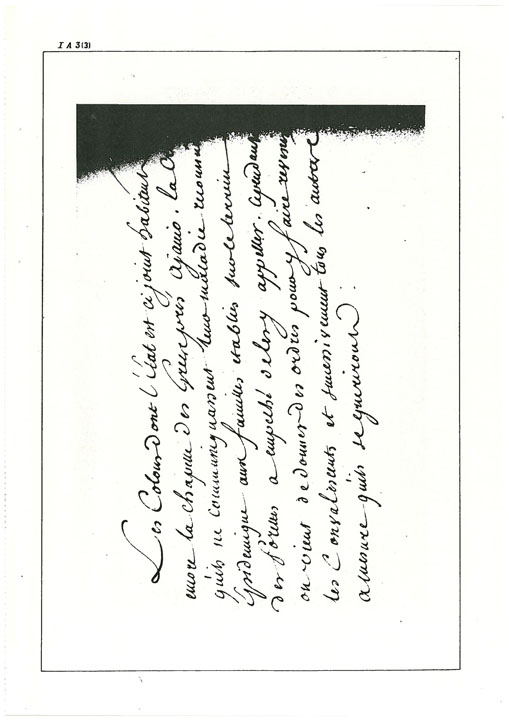 I A 3(3)
Les Colons dont l'État est cy joint habitent
encore la chapelle des Grecs près Ajaccio. la
qu'ils ne communiquassent leur maladie
Epidemique aux familles etablies sur le terrein
des formes a empeché de les y appeller. Cependant
on vient de donner des ordres pour y faire
les Convalescents et successivement tous les autres
a mesure qu'ils se gueriront.